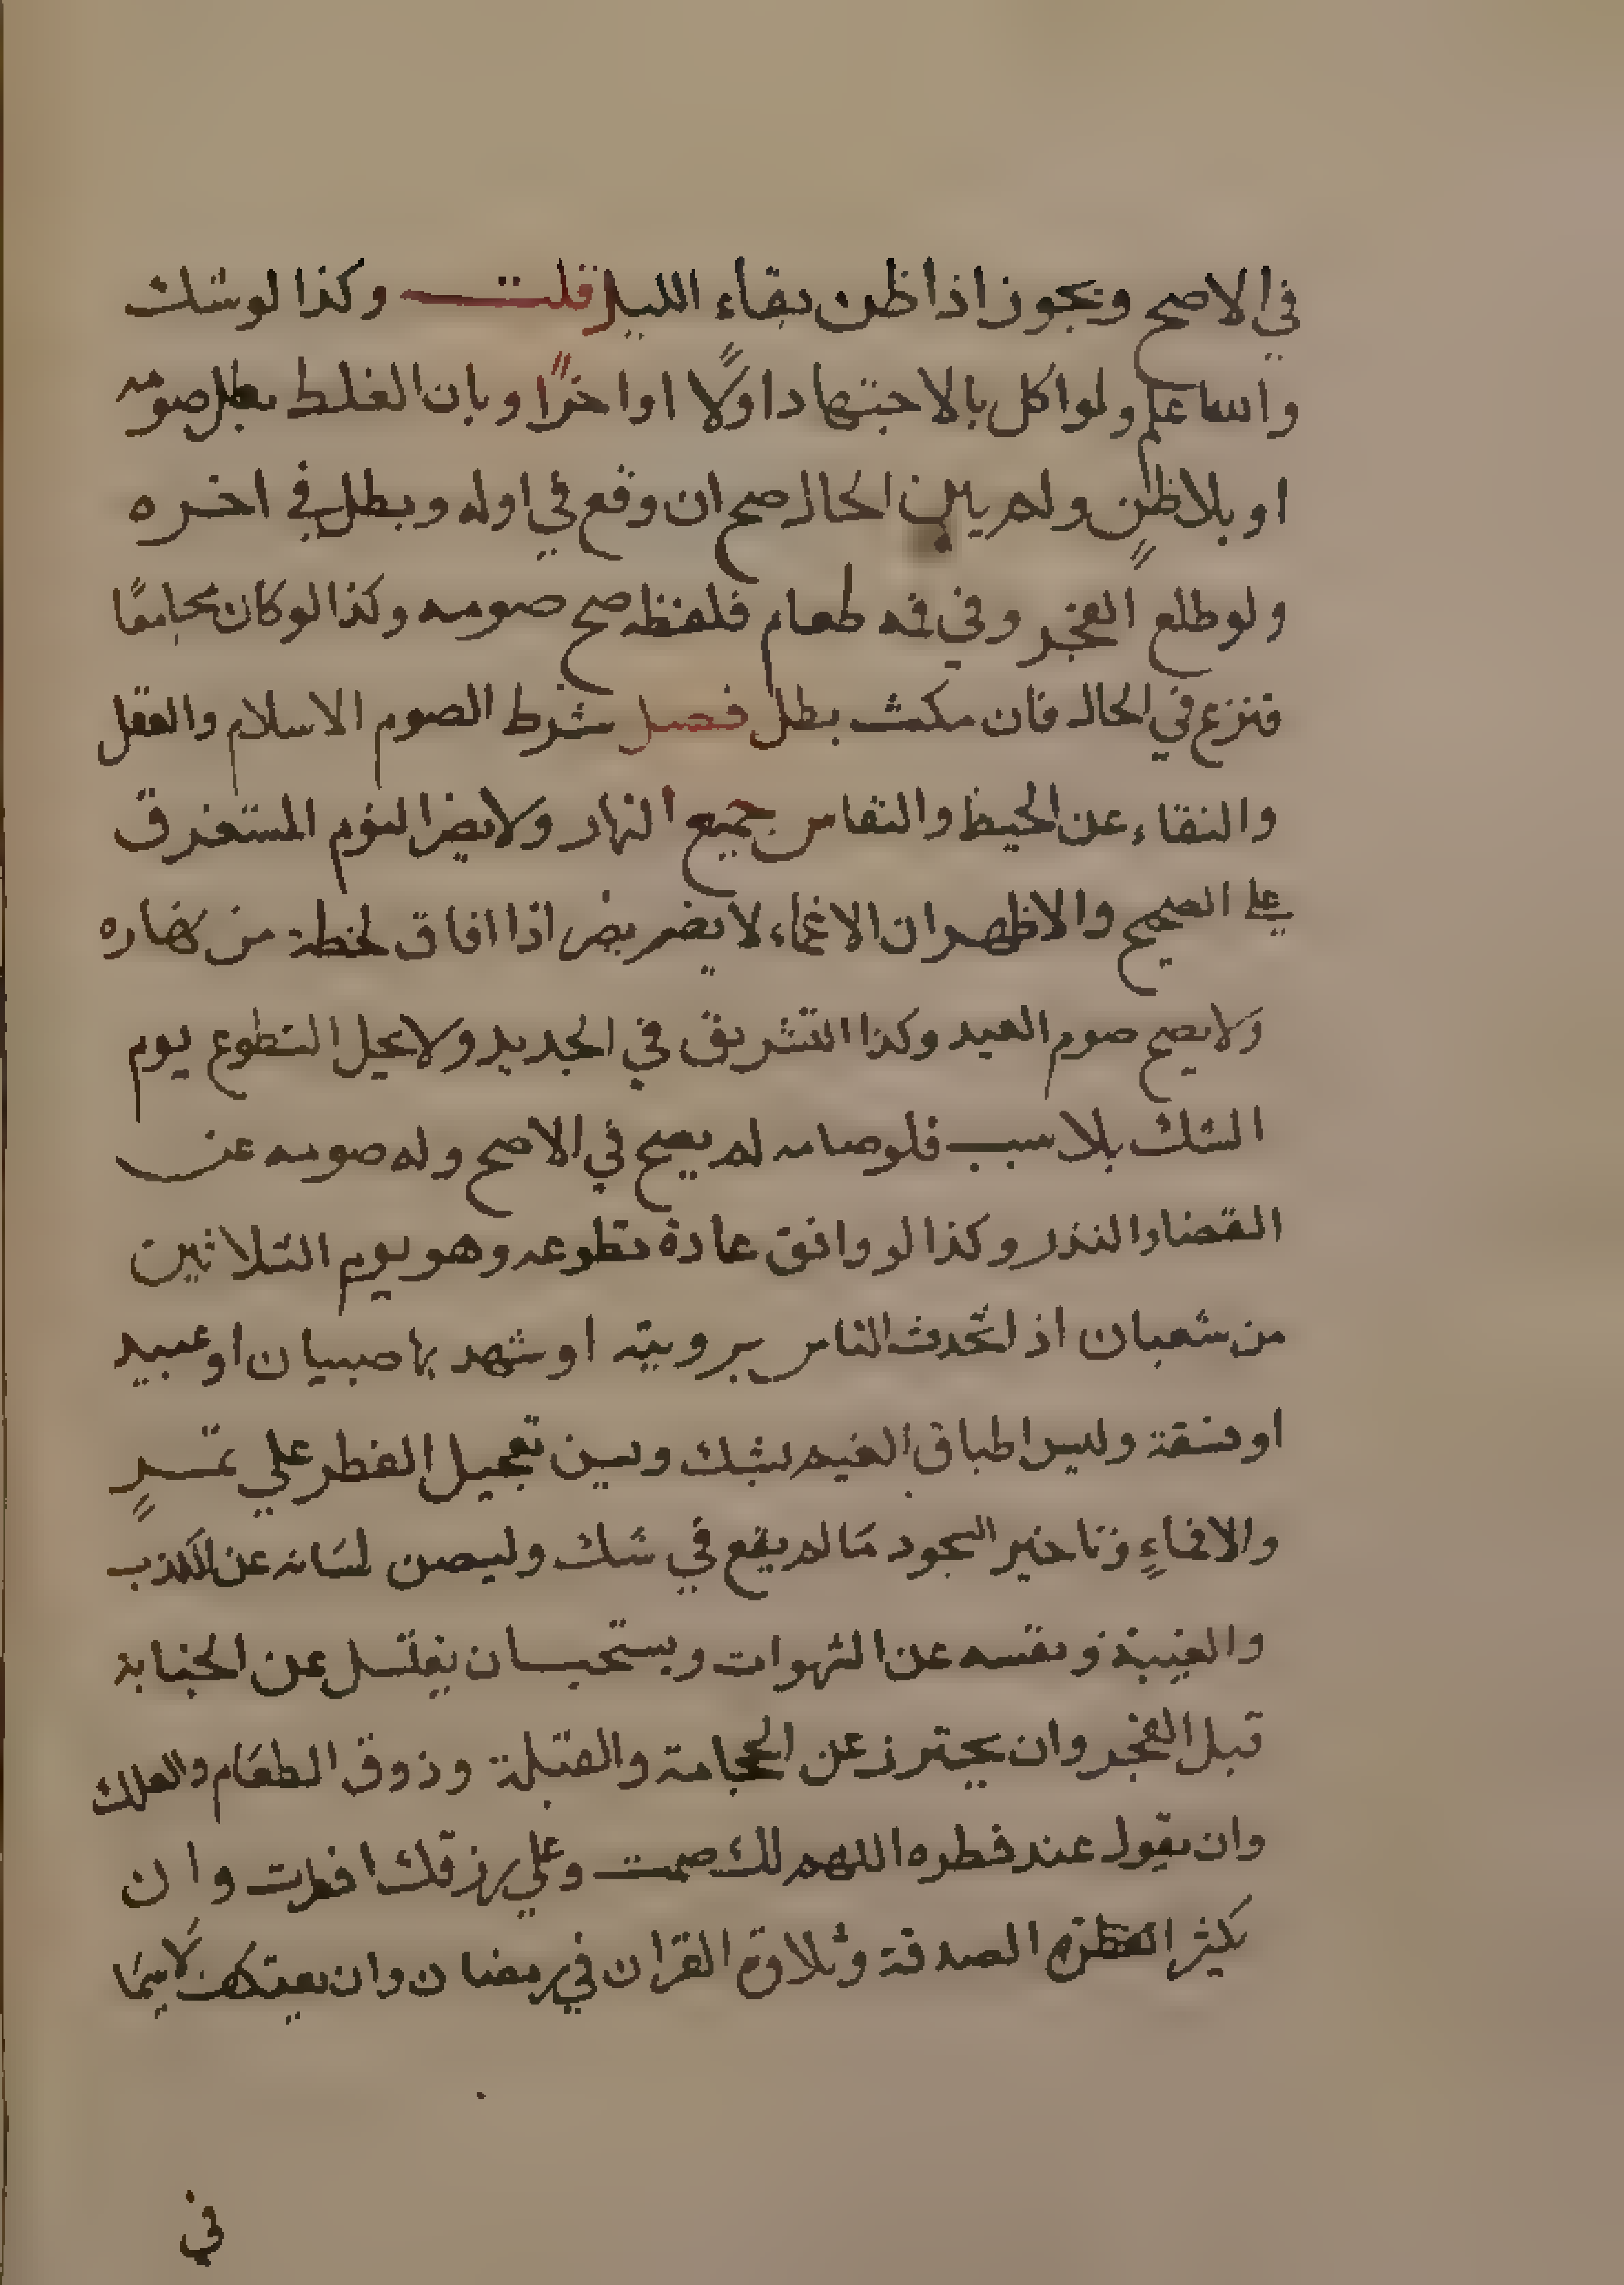 في الاصح ويجوز اذا ظن بقاء الليل قلت وكذا لو شك
والله اعلم ولو اكل بالاجتهاد اولًا او اخرًا وبان الغلط بطل صومه
او بلا ظن ولم يبن الحال صح ان وقع في اوله وبطل في اخره
ولو طلع الفجر وفي فمه طعام فلفظه صح صومه وكذا لو كان مجامعًا
فنزع في الحال فان مكث بطل فصل شرط الصوم الاسلام والعقل
والنقاء عن الحيض والنفاس جميع النهار ولا يضر النوم المستغرق
علي الصحيح والاظهر ان الاغماء لا يضر يضر اذا افاق لحظة من نهاره
ولا يصح صوم العيد وكذا التشريق في الجديد ولا يحل التطوع يوم
الشك بلا سبب فلو صامه لم يصح في الاصح وله صومه عن
القضا والنذر وكذا لو وافق عادة تطوعه وهو يوم الثلاثين
من شعبان اذا تحدث الناس برويته او شهد بها صبيان او عبيد
او فسقة وليس اطباق الغيم بشك ويسن تعجيل الفطر علي تمر
والا فماءٍ وتاخير السحور مَا لم يقع في شك وليصن لسَانه عن الكذب
والغيبة ونفسه عن الشهوات ويستحب ان يغتسل عن الجنابة
قبل الفجر وان يحترز عن الحجامة والقبلة وذوق الطعَام والعلك
وان يقول عند فطره اللهم لك صمت وعلي رزقك افطرت وان
يكثر الصدقة وتلاوة القران في رمضان وان يعتكف لا سيمَا
في